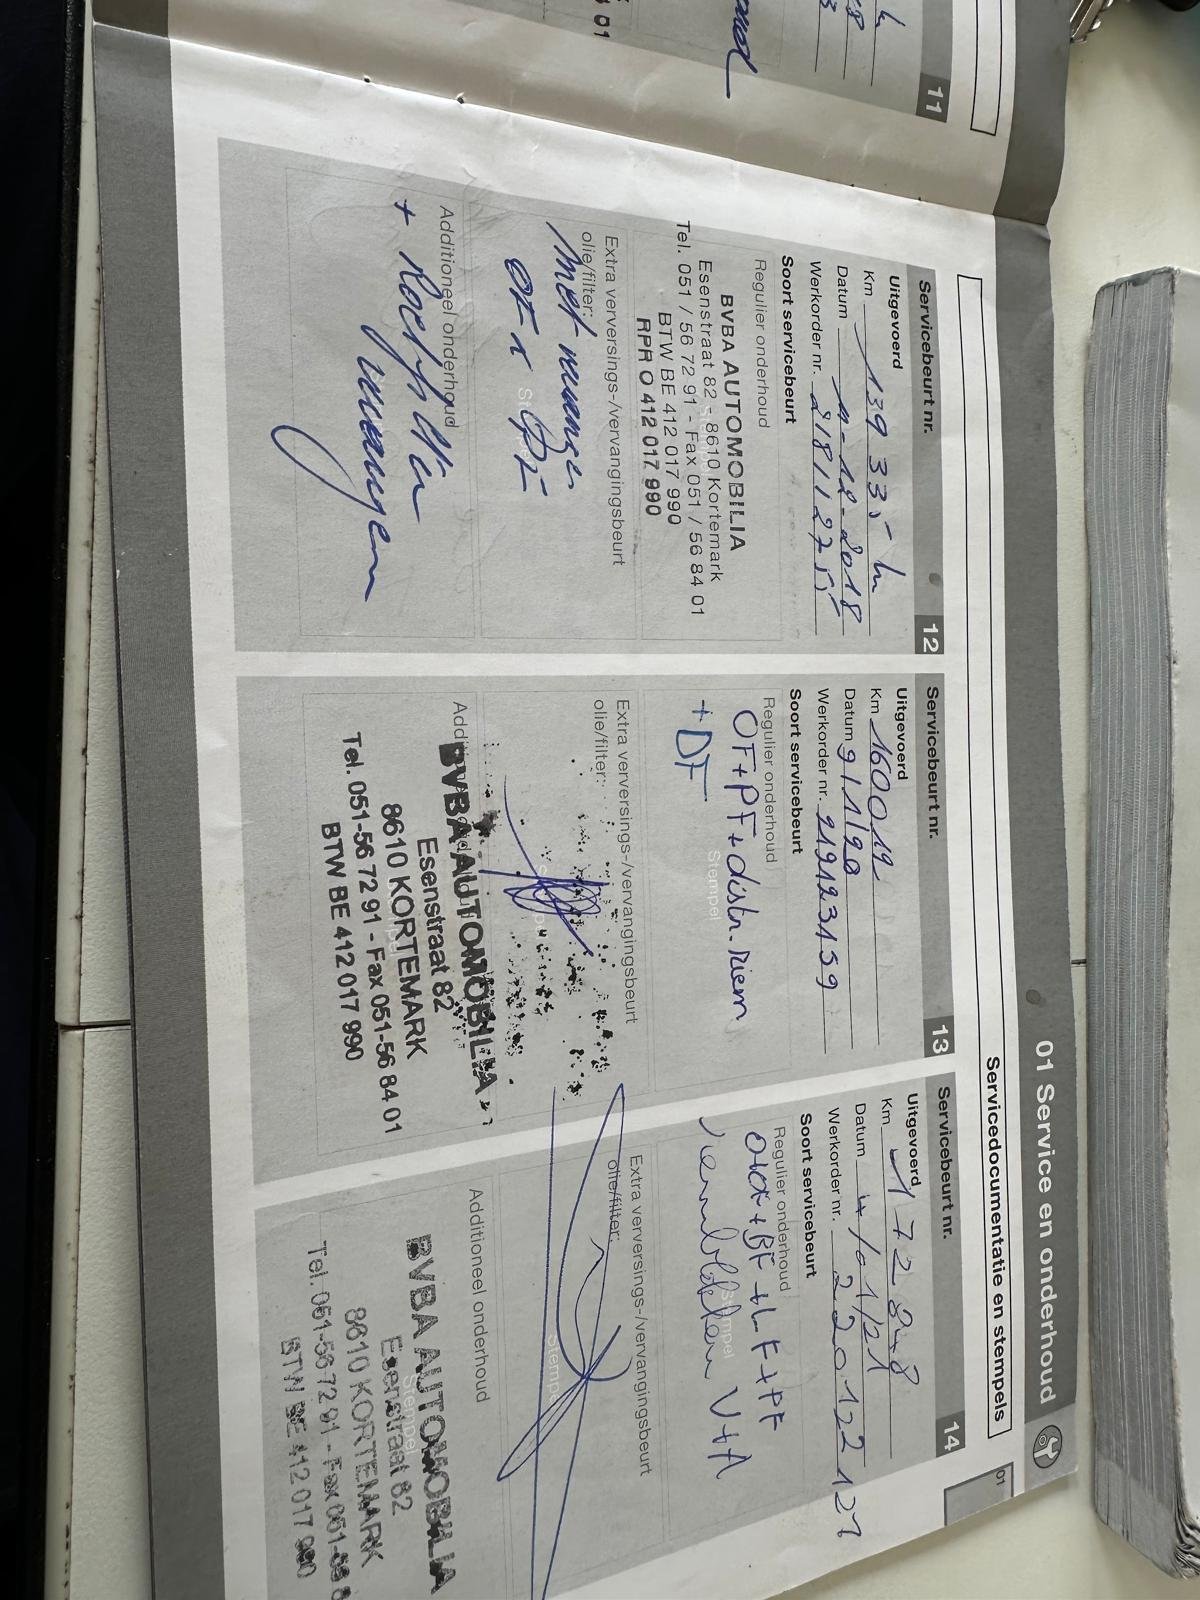 01 Service en onderhoud
Servicedocumentatie en stempels
01
11
01
Servicebeurt nr. 12
Uitgevoerd
Km 139 335 km
Datum 11-12-2018
Werkorder nr. 218112755
Soort servicebeurt
Regulier onderhoud
BVBA AUTOMOBILIA
Esenstraat 82 - 8610 Kortemark
Tel. 051 / 56 72 91 - Fax 051 / 56 84 01
BTW BE 412 017 990
RPR O 412 017 990
Extra verversings-/vervangingsbeurt
olie/filter:
Additioneel onderhoud
Servicebeurt nr. 13
Uitgevoerd
Km 160019
Datum 9/1/20
Werkorder nr. 219123159
Soort servicebeurt
Regulier onderhoud
OF+PF+distr. Riem
+DF
Stempel
Extra verversings-/vervangingsbeurt
olie/filter:
BVBA AUTOMOBILIA
Esenstraat 82
8610 KORTEMARK
Tel. 051-56 72 91 - Fax 051-56 84 01
BTW BE 412 017 990
Servicebeurt nr. 14
Uitgevoerd
Km 172 848
Datum 4/01/21
Werkorder nr. 220122121
Soort servicebeurt
Regulier onderhoud
Stempel
Extra verversings-/vervangingsbeurt
olie/filter:
Stempel
Additioneel onderhoud
Stempel
BVBA AUTOMOBILIA
Esenstraat 82
8610 KORTEMARK
Tel. 051-56 72 91 - Fax 051-56 8
BTW BE 412 017 990